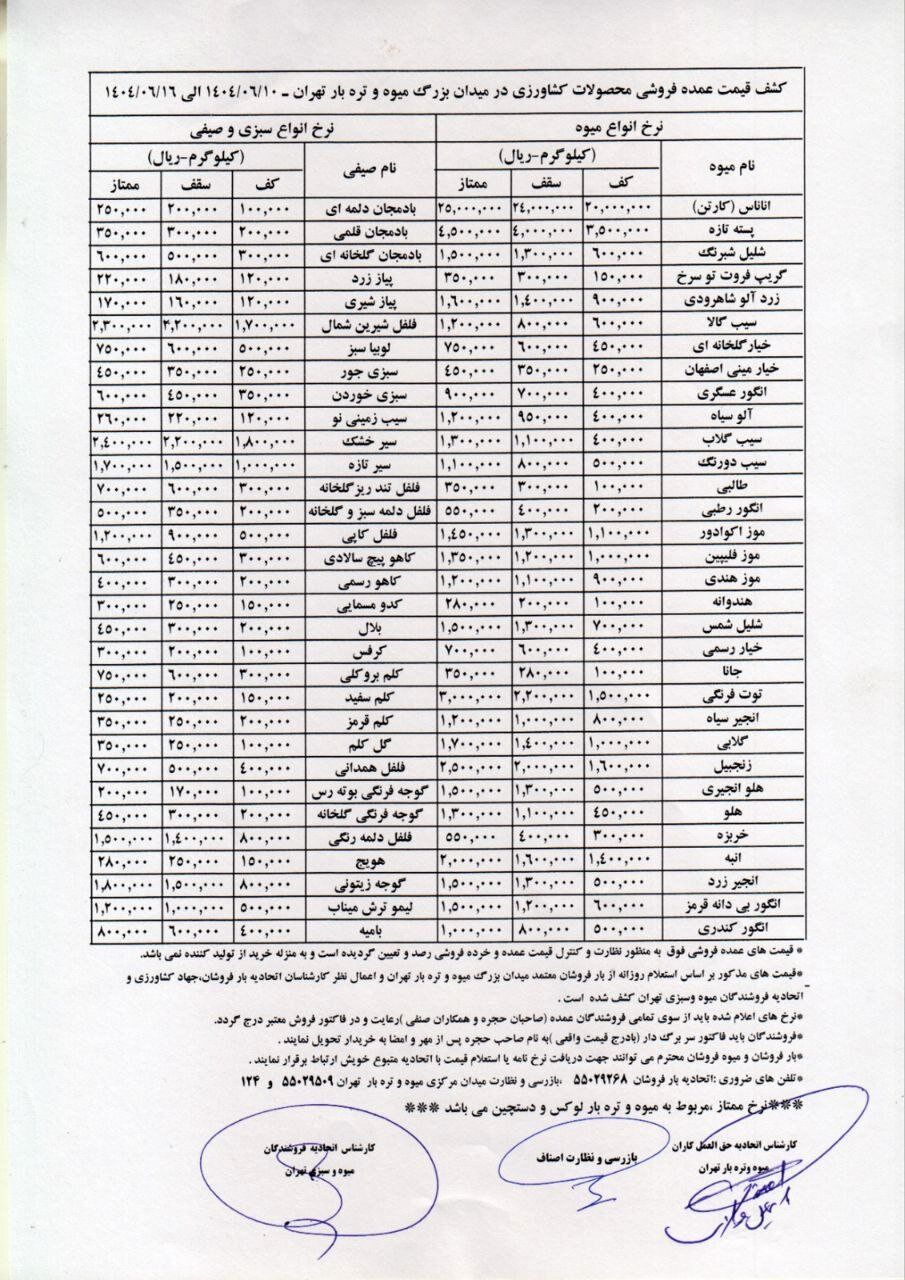 کشف قیمت عمده فروشی محصولات کشاورزی در میدان بزرگ میوه و تره بار تهران ــ ۱۴۰۴/۰۶/۱۰ الی ۱۴۰۴/۰۶/۱۶
نرخ انواع میوه نرخ انواع سبزی و صیفی
نام میوه (کیلوگرم-ریال) نام صیفی (کیلوگرم-ریال)
کف سقف ممتاز کف سقف ممتاز
اناناس (کارتن) ۲۰,۰۰۰,۰۰۰ ۲۴,۰۰۰,۰۰۰ ۲۵,۰۰۰,۰۰۰ بادمجان دلمه ای ۱۰۰,۰۰۰ ۲۰۰,۰۰۰ ۲۵۰,۰۰۰
پسته تازه ۳,۵۰۰,۰۰۰ ۴,۰۰۰,۰۰۰ ۴,۵۰۰,۰۰۰ بادمجان قلمی ۲۰۰,۰۰۰ ۳۰۰,۰۰۰ ۳۵۰,۰۰۰
شلیل شبرنگ ۶۰۰,۰۰۰ ۱,۳۰۰,۰۰۰ ۱,۵۰۰,۰۰۰ بادمجان گلخانه ای ۳۰۰,۰۰۰ ۵۰۰,۰۰۰ ۶۰۰,۰۰۰
گریپ فروت تو سرخ ۱۵۰,۰۰۰ ۳۰۰,۰۰۰ ۳۵۰,۰۰۰ پیاز زرد ۱۲۰,۰۰۰ ۱۸۰,۰۰۰ ۲۲۰,۰۰۰
زرد آلو شاهرودی ۹۰۰,۰۰۰ ۱,۴۰۰,۰۰۰ ۱,۶۰۰,۰۰۰ پیاز شیری ۱۲۰,۰۰۰ ۱۶۰,۰۰۰ ۱۷۰,۰۰۰
سیب گالا ۶۰۰,۰۰۰ ۸۰۰,۰۰۰ ۱,۲۰۰,۰۰۰ فلفل شیرین شمال ۱,۷۰۰,۰۰۰ ۲,۲۰۰,۰۰۰ ۲,۳۰۰,۰۰۰
خیارگلخانه ای ۴۵۰,۰۰۰ ۶۰۰,۰۰۰ ۷۵۰,۰۰۰ لوبیا سبز ۵۰۰,۰۰۰ ۶۰۰,۰۰۰ ۷۵۰,۰۰۰
خیار مینی اصفهان ۲۵۰,۰۰۰ ۳۵۰,۰۰۰ ۴۵۰,۰۰۰ سبزی جور ۲۵۰,۰۰۰ ۳۵۰,۰۰۰ ۴۵۰,۰۰۰
انگور عسگری ۴۰۰,۰۰۰ ۷۰۰,۰۰۰ ۹۰۰,۰۰۰ سبزی خوردن ۳۵۰,۰۰۰ ۴۵۰,۰۰۰ ۶۰۰,۰۰۰
آلو سیاه ۴۰۰,۰۰۰ ۹۵۰,۰۰۰ ۱,۲۰۰,۰۰۰ سیب زمینی نو ۱۲۰,۰۰۰ ۲۲۰,۰۰۰ ۲۶۰,۰۰۰
سیب گلاب ۴۰۰,۰۰۰ ۱,۱۰۰,۰۰۰ ۱,۳۰۰,۰۰۰ سیر خشک ۱,۸۰۰,۰۰۰ ۲,۲۰۰,۰۰۰ ۲,۴۰۰,۰۰۰
سیب دورنگ ۵۰۰,۰۰۰ ۸۰۰,۰۰۰ ۱,۱۰۰,۰۰۰ سیر تازه ۱,۰۰۰,۰۰۰ ۱,۵۰۰,۰۰۰ ۱,۷۰۰,۰۰۰
طالبی ۱۰۰,۰۰۰ ۳۰۰,۰۰۰ ۳۵۰,۰۰۰ فلفل تند ریزگلخانه ۳۰۰,۰۰۰ ۶۰۰,۰۰۰ ۷۰۰,۰۰۰
انگور رطبی ۲۰۰,۰۰۰ ۴۰۰,۰۰۰ ۵۵۰,۰۰۰ فلفل دلمه سبز و گلخانه ۲۰۰,۰۰۰ ۳۵۰,۰۰۰ ۵۰۰,۰۰۰
موز اکوادور ۱,۱۰۰,۰۰۰ ۱,۳۰۰,۰۰۰ ۱,۴۵۰,۰۰۰ فلفل کاپی ۵۰۰,۰۰۰ ۹۰۰,۰۰۰ ۱,۲۰۰,۰۰۰
موز فلیپین ۱,۰۰۰,۰۰۰ ۱,۲۰۰,۰۰۰ ۱,۳۵۰,۰۰۰ کاهو پیچ سالادی ۳۰۰,۰۰۰ ۴۵۰,۰۰۰ ۶۰۰,۰۰۰
موز هندی ۹۰۰,۰۰۰ ۱,۱۰۰,۰۰۰ ۱,۲۰۰,۰۰۰ کاهو رسمی ۲۰۰,۰۰۰ ۳۰۰,۰۰۰ ۴۰۰,۰۰۰
هندوانه ۱۰۰,۰۰۰ ۲۰۰,۰۰۰ ۲۸۰,۰۰۰ کدو مسمایی ۱۵۰,۰۰۰ ۲۵۰,۰۰۰ ۳۰۰,۰۰۰
شلیل شمس ۷۰۰,۰۰۰ ۱,۳۰۰,۰۰۰ ۱,۵۰۰,۰۰۰ بلال ۲۰۰,۰۰۰ ۳۰۰,۰۰۰ ۴۵۰,۰۰۰
خیار رسمی ۴۰۰,۰۰۰ ۶۰۰,۰۰۰ ۷۰۰,۰۰۰ کرفس ۱۰۰,۰۰۰ ۲۰۰,۰۰۰ ۳۰۰,۰۰۰
جانا ۱۰۰,۰۰۰ ۲۸۰,۰۰۰ ۳۵۰,۰۰۰ کلم بروکلی ۳۰۰,۰۰۰ ۶۰۰,۰۰۰ ۷۵۰,۰۰۰
توت فرنگی ۱,۵۰۰,۰۰۰ ۲,۲۰۰,۰۰۰ ۳,۰۰۰,۰۰۰ کلم سفید ۱۵۰,۰۰۰ ۲۰۰,۰۰۰ ۲۵۰,۰۰۰
انجیر سیاه ۸۰۰,۰۰۰ ۱,۰۰۰,۰۰۰ ۱,۲۰۰,۰۰۰ کلم قرمز ۲۰۰,۰۰۰ ۲۵۰,۰۰۰ ۳۵۰,۰۰۰
گلابی ۱,۰۰۰,۰۰۰ ۱,۴۰۰,۰۰۰ ۱,۷۰۰,۰۰۰ گل کلم ۱۰۰,۰۰۰ ۲۵۰,۰۰۰ ۳۵۰,۰۰۰
زنجبیل ۱,۶۰۰,۰۰۰ ۲,۰۰۰,۰۰۰ ۲,۵۰۰,۰۰۰ فلفل همدانی ۴۰۰,۰۰۰ ۵۰۰,۰۰۰ ۷۰۰,۰۰۰
هلو انجیری ۵۰۰,۰۰۰ ۱,۳۰۰,۰۰۰ ۱,۵۰۰,۰۰۰ گوجه فرنگی بوته رس ۱۰۰,۰۰۰ ۱۷۰,۰۰۰ ۲۰۰,۰۰۰
هلو ۴۵۰,۰۰۰ ۱,۱۰۰,۰۰۰ ۱,۳۰۰,۰۰۰ گوجه فرنگی گلخانه ۲۰۰,۰۰۰ ۳۰۰,۰۰۰ ۴۵۰,۰۰۰
خربزه ۳۰۰,۰۰۰ ۴۰۰,۰۰۰ ۵۵۰,۰۰۰ فلفل دلمه رنگی ۸۰۰,۰۰۰ ۱,۴۰۰,۰۰۰ ۱,۵۰۰,۰۰۰
انبه ۱,۴۰۰,۰۰۰ ۱,۶۰۰,۰۰۰ ۲,۰۰۰,۰۰۰ هویج ۱۵۰,۰۰۰ ۲۵۰,۰۰۰ ۲۸۰,۰۰۰
انجیر زرد ۵۰۰,۰۰۰ ۱,۳۰۰,۰۰۰ ۱,۵۰۰,۰۰۰ گوجه زیتونی ۸۰۰,۰۰۰ ۱,۵۰۰,۰۰۰ ۱,۸۰۰,۰۰۰
انگور بی دانه قرمز ۶۰۰,۰۰۰ ۱,۲۰۰,۰۰۰ ۱,۵۰۰,۰۰۰ لیمو ترش میناب ۵۰۰,۰۰۰ ۱,۰۰۰,۰۰۰ ۱,۲۰۰,۰۰۰
انگور کندری ۵۰۰,۰۰۰ ۸۰۰,۰۰۰ ۱,۰۰۰,۰۰۰ بامیه ۴۰۰,۰۰۰ ۶۰۰,۰۰۰ ۸۰۰,۰۰۰
* قیمت های عمده فروشی فوق به منظور نظارت و کنترل قیمت عمده و خرده فروشی رصد و تعیین گردیده است و به منزله خرید از تولید کننده نمی باشد.
*قیمت های مذکور بر اساس استعلام روزانه از بار فروشان معتمد میدان بزرگ میوه و تره بار تهران و اعمال نظر کارشناسان اتحادیه بار فروشان،جهاد کشاورزی و
اتحادیه فروشندگان میوه وسبزی تهران کشف شده است .
*نرخ های اعلام شده باید از سوی تمامی فروشندگان عمده (صاحبان حجره و همکاران صنفی )رعایت و در فاکتور فروش معتبر درج گردد.
*فروشندگان باید فاکتور سر برگ دار (بادرج قیمت واقعی )به نام صاحب حجره پس از مهر و امضا به خریدار تحویل نمایند .
*بار فروشان و میوه فروشان محترم می توانند جهت دریافت نرخ نامه یا استعلام قیمت با اتحادیه متبوع خویش ارتباط برقرار نمایند .
*تلفن های ضروری :اتحادیه بار فروشان ۵۵۰۲۹۲۶۸ ،بازرسی و نظارت میدان مرکزی میوه و تره بار تهران ۵۵۰۲۹۵۰۹ و ۱۲۴
***نرخ ممتاز ،مربوط به میوه و تره بار لوکس و دستچین می باشد ***
کارشناس اتحادیه حق العمل کاران بازرسی و نظارت اصناف کارشناس اتحادیه فروشندگان
میوه وتره بار تهران میوه و سبزی تهران